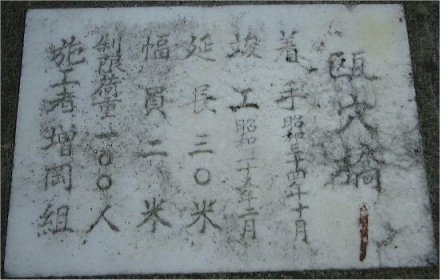 甌穴橋
着手昭和二十四年十月
竣工昭和二十五年二月
延長三〇米
幅員二米
制限荷重一〇〇人
施工者増岡組